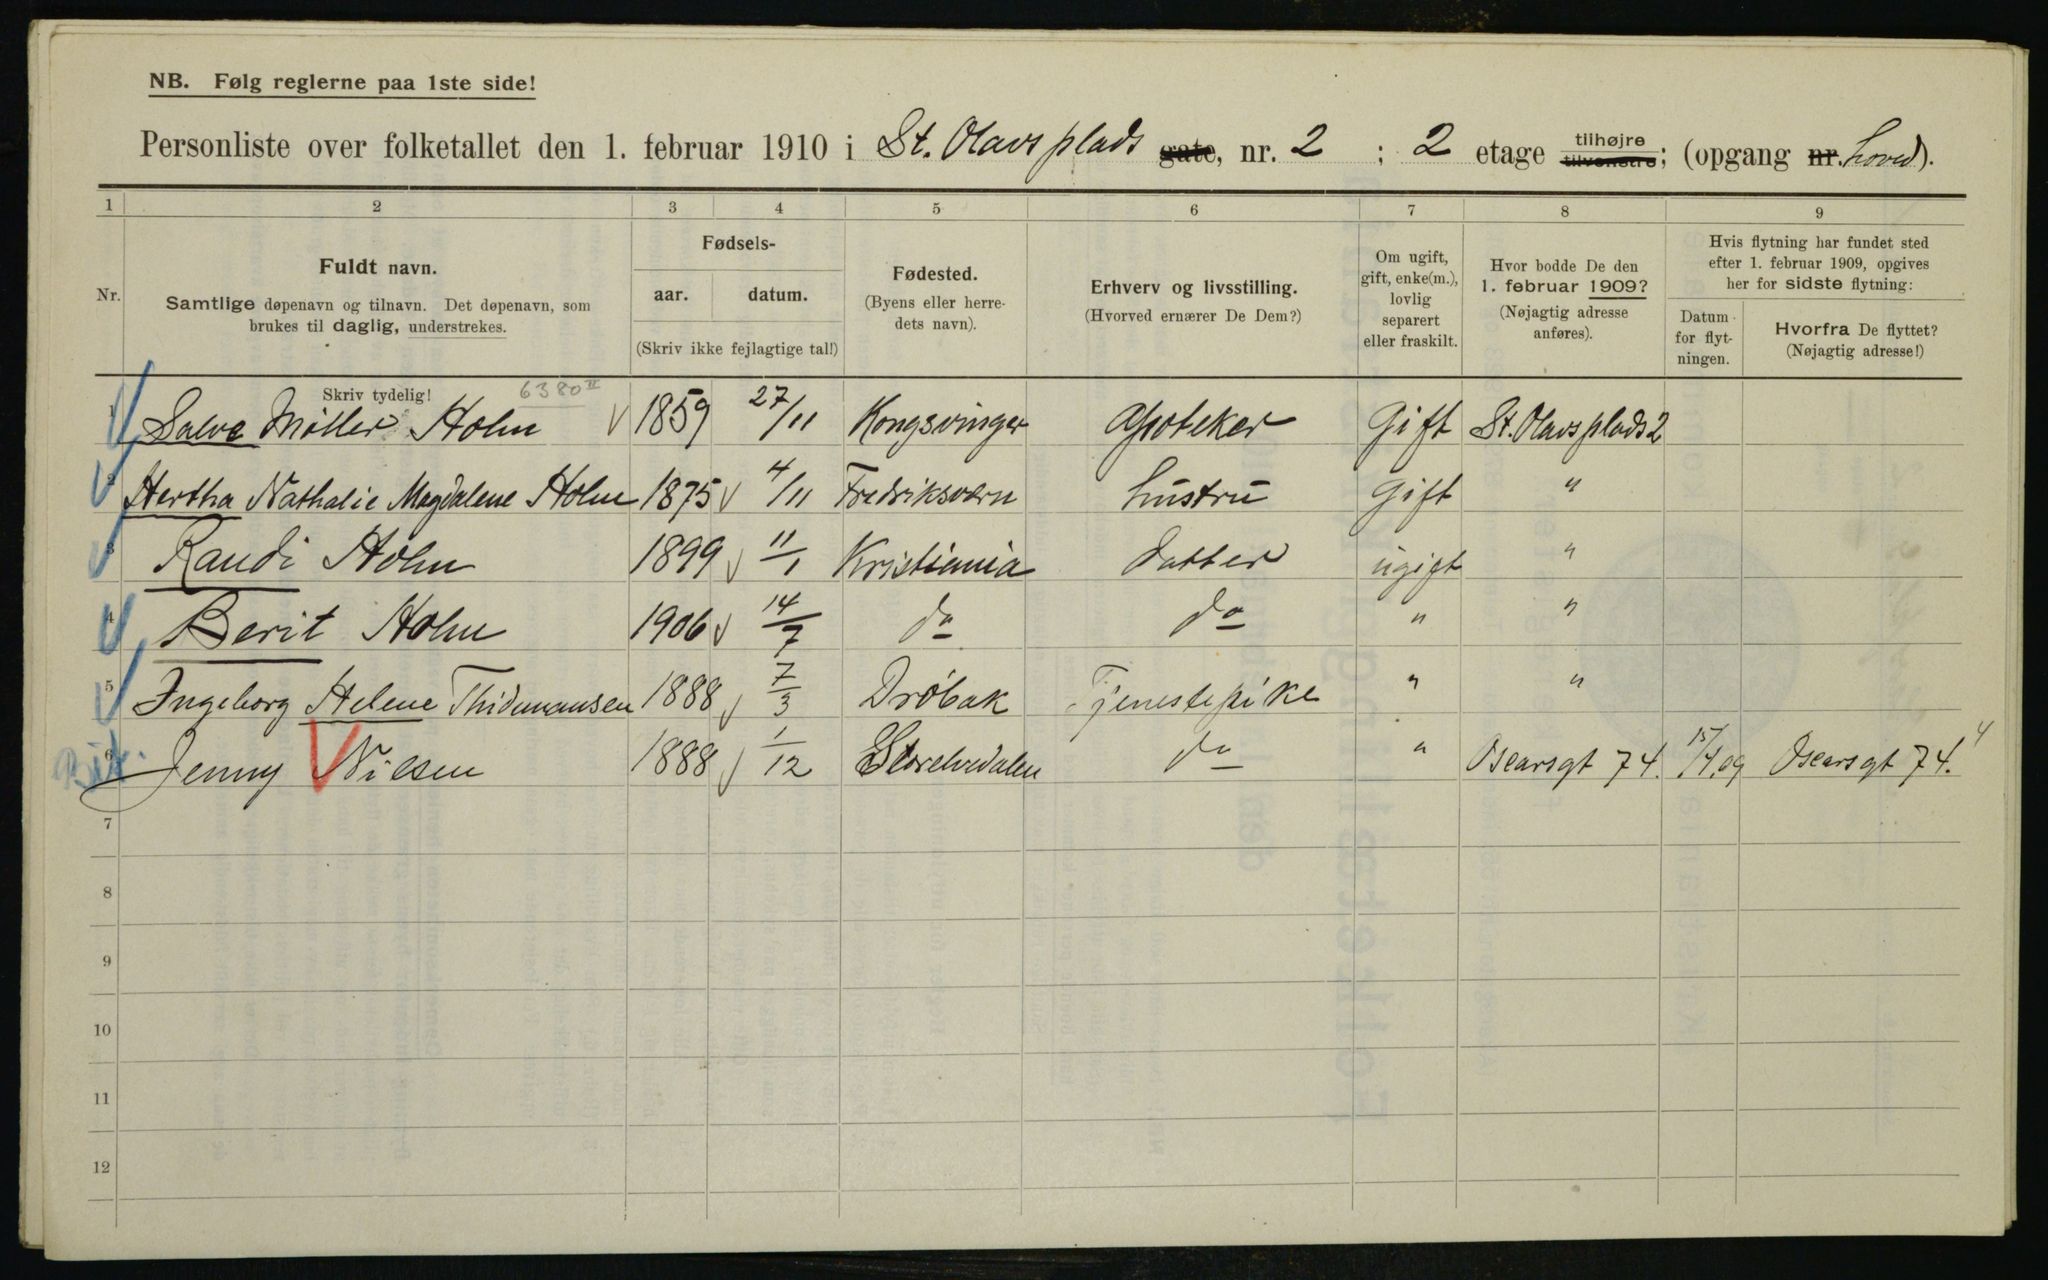 NB. Følg reglerne paa 1ste side!
Personliste over folketallet den 1. februar 1910 i St. Olavs plads gate, nr. 2 ; 2 etage tilhøjre tilvenstre; (opgang nr. hoved).
1 2 3 4 5 6 7 8 9
Nr.
Fuldt navn.
Samtlige døpenavn og tilnavn. Det døpenavn, som
brukes til daglig, understrekes.
Skriv tydelig!
6380 II
Fødsels-
aar. datum.
(Skriv ikke fejlagtige tal!)
Fødested.
(Byens eller herre-
dets navn).
Erhverv og livsstilling.
(Hvorved ernærer De Dem?)
Om ugift,
gift, enke(m.),
lovlig
separert
eller fraskilt.
Hvor bodde De den
1. februar 1909?
(Nøjagtig adresse
anføres).
Hvis flytning har fundet sted
efter 1. februar 1909, opgives
her for sidste flytning:
Datum
for flyt-
ningen.
Hvorfra De flyttet?
(Nøjagtig adresse!)
1 Salve Møller Holm 1859 27/11 Kongsvinger Apoteker Gift St. Olavs plads 2
2 Hertha Nathalie Magdalene Holm 1875 4/11 Fredriksværn hustru Gift "
3 Randi Holm 1899 11/1 Kristiania datter ugift "
4 Berit Holm 1906 14/7 do do " "
5 Ingeborg Helene Thidemansen 1888 7/3 Drøbak Tjenestepike " "
6 Jenny Nilsen 1888 1/12 Storelvedalen do " Oscarsgt 74. 15/4.09 Oscarsgt 74. 4
7
8
9
10
11
12